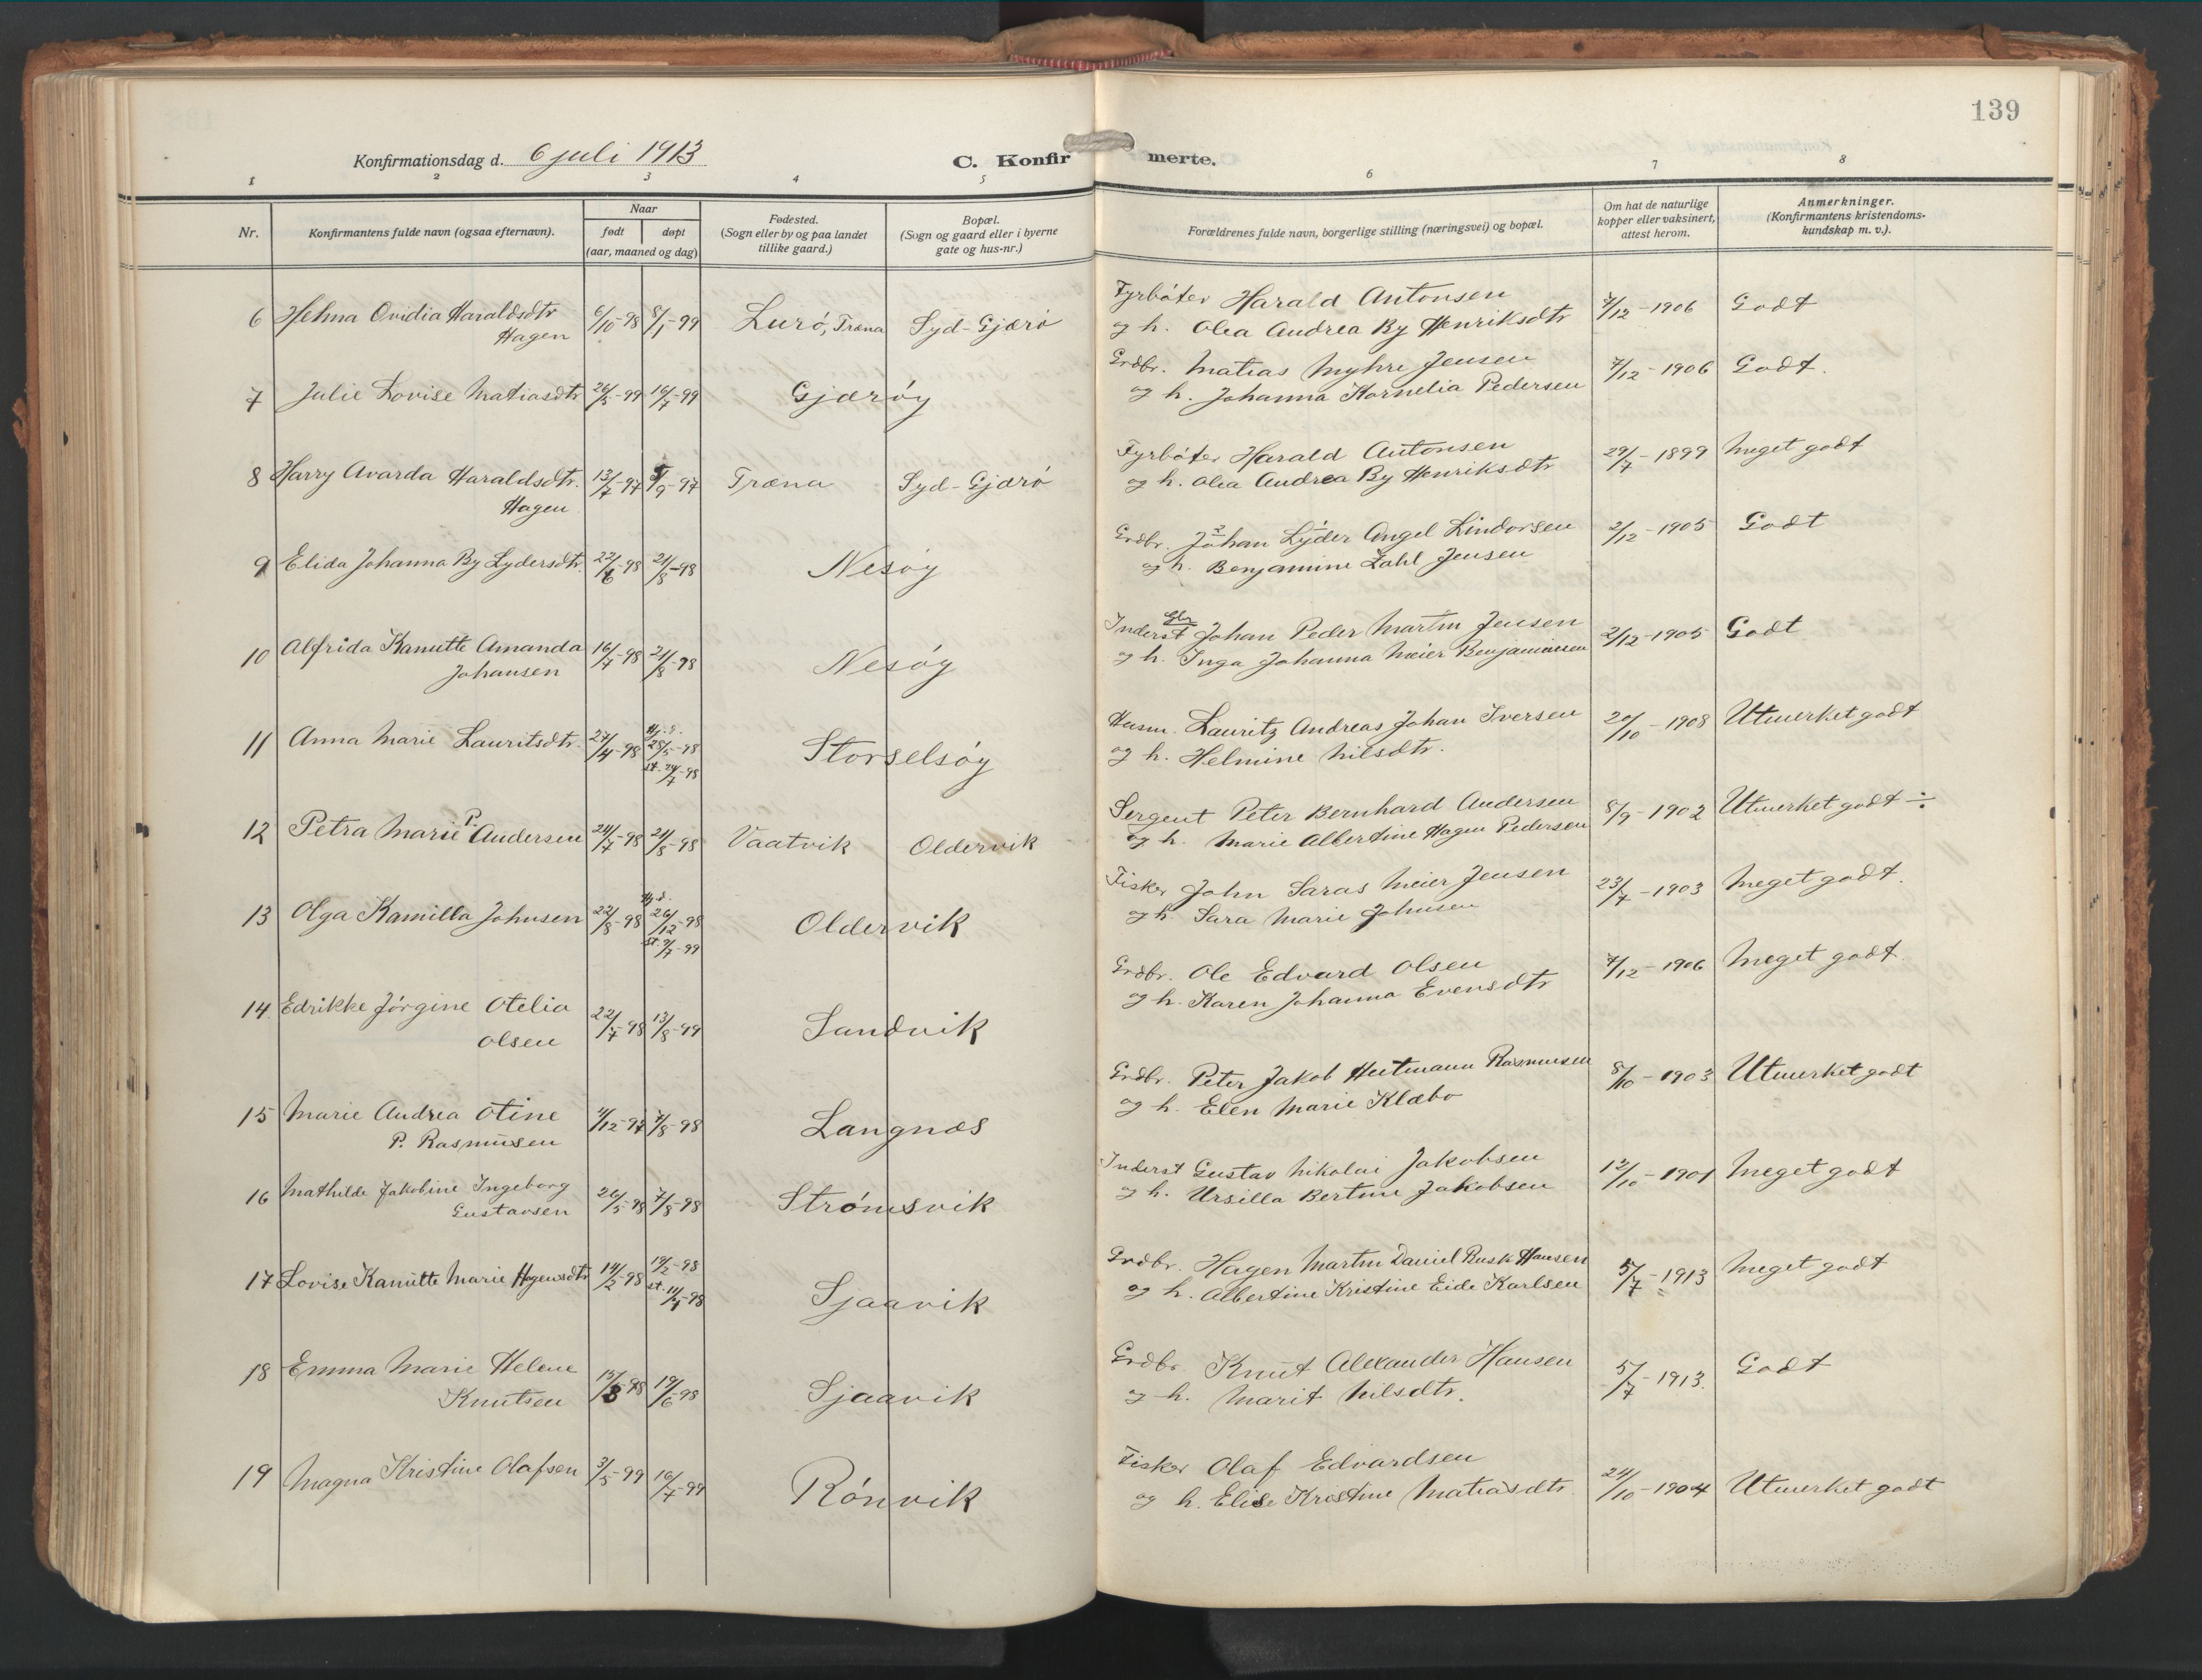 139
Konfirmationsdag d. 6 juli 1913
C. Konfir merte.
1 2 3 4 5 6 7 8
Nr. Konfirmantens fulde navn (ogsaa efternavn). Naar født døpt (aar, maaned og dag)
Fødested. (Sogn eller by og paa landet tillike gaard.)
Bopæl. (Sogn og gaard eller i byerne gate og hus-nr.)
Forældrenes fulde navn, borgerlige stilling (næringsvei) og bopæl.
Om hat de naturlige kopper eller vaksinert, attest herom.
Anmerkninger. (Konfirmantens kristendoms-kundskap m. v.).
6 Helma Ovidia Haraldsdtr 6/10-98 8/1-99 Lurö, Træna Syd-Gjærö Fyrböter Harald Antonsen 7/12-1906 Godt
Hagen og h. Olea Andrea By Henriksdtr
7 Julie Lovise Matiasdtr 26/5-99 16/7-99 Gjæröy Grdbr. Matias Myhre Jensen 7/12-1906 Godt.
og h. Johanna Kornelia Pedersen
8 Harry Avarda Haraldsdtr. 13/7-97 5/9-97 Træna Syd-Gjærö Fyrböter Harald Antonsen 29/7-1899 Meget godt
Hagen og h. Olea Andrea By Henriksdtr
9 Elida Johanna By Lydersdtr. 22/6-98 21/8-98 Nesöy Grdbr. Johan Lyder Angel Lindorsen 2/12-1905 Godt
og h. Benjamine Zahl Jensen
10 Alfrida Kanutte Amanda 16/7-98 21/8-98 Nesöy Inderst Johan Peder Martin Jensen 2/12-1905 Godt
Johansen og h. Inga Johanna Meier Benjaminsen
11 Anna Marie Lauritsdtr. 27/4-98 28/5-98 Storselsöy Husm. Lauritz Andreas Johan Iversen 20/10-1908 Utmerket godt
st. 24/7-98 og h. Helmine Nilsdtr.
12 Petra Marie P. Andersen 24/7-98 21/8-98 Vaatvik Oldervik Sergent Peter Bernhard Andersen 8/9-1902 Utmerket godt ÷
og h. Marie Albertine Hagen Pedersen
13 Olga Kamilla Johnsen 22/8-98 26/12-98 Oldervik Fisker John Saras Meier Jensen 23/7-1903 Meget godt.
og h. Sara Marie Johnsen
14 Edrikke Jörgine Otelia 22/7-98 13/8-99 Sandvik Grdbr. Ole Edvard Olsen 7/12-1906 Meget godt.
Olsen og h. Karen Johanna Evensdtr
15 Marie Andrea Otine 7/8-98 Langnæs Grdbr. Peter Jakob Heitmann Rasmussen 8/10-1903 Utmerket godt
P. Rasmussen og h. Elen Marie Klæbo
16 Mathilde Jakobine Ingeborg 26/5-98 7/8-98 Strömsvik Inderst Gustav Nikolai Jakobsen 12/10-1901 Meget godt
Gustavsen og h. Ursilla Bertine Jakobsen
17 Lovise Kanutte Marie Hagensdtr 14/2-98 19/2-98 Sjaavik Grdbr. Hagen Martin Daniel Rusk Hansen 5/7-1913 Meget godt
st. 11/4-98 og h. Albertine Kristine Eide Karlsen
18 Emma Marie Helene 15/3-98 19/6-98 Sjaavik Grdbr. Knut Alexander Hansen 5/7-1913. Godt
Knutsen og h. Marit Nilsdtr.
19 Magna Kristine Olafsen 3/5-99 16/7-99 Rönvik Fisker Olaf Edvardsen 24/10-1904 Utmerket godt
og h. Elise Kristine Matiasdtr.